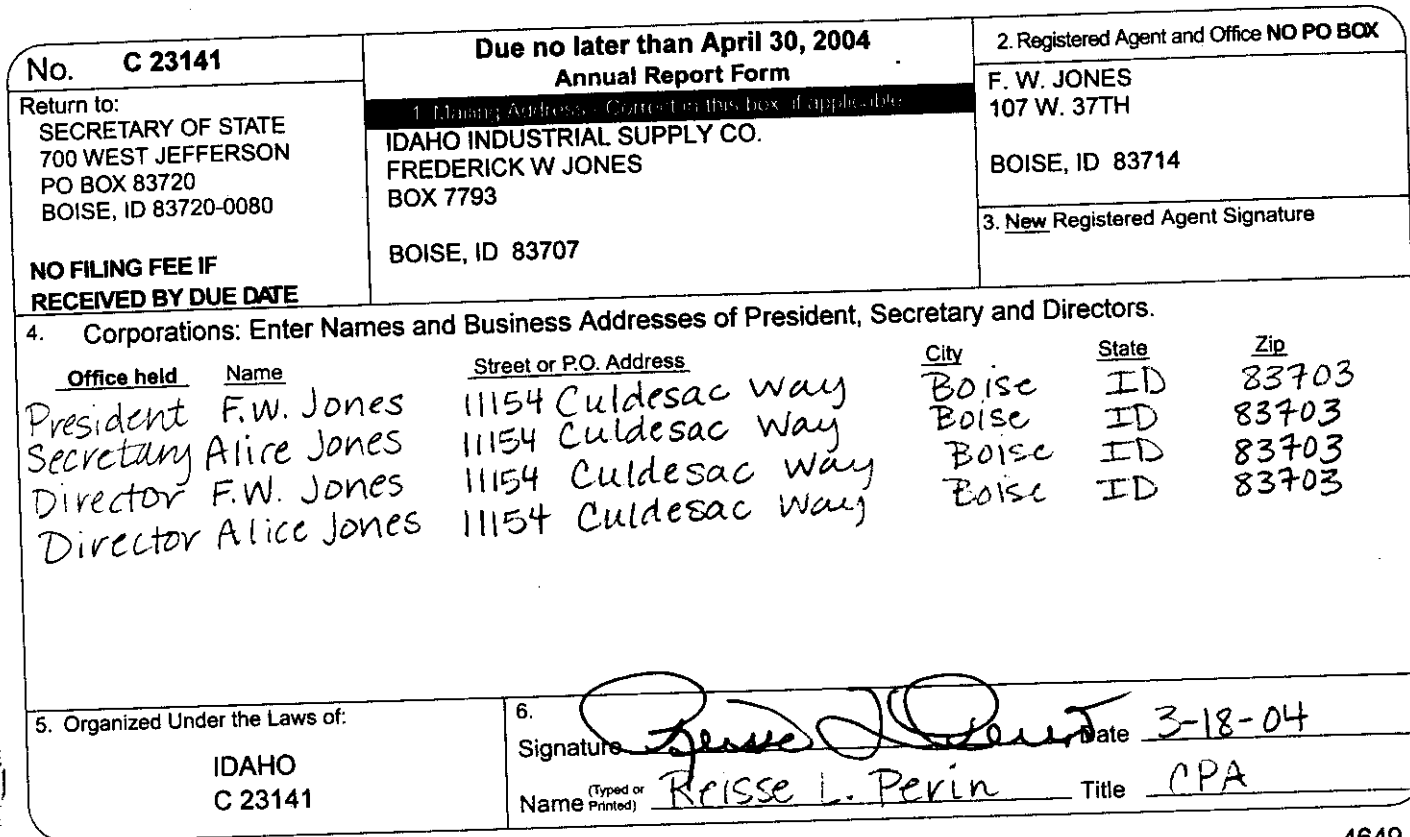 No. C 23141
Return to:
SECRETARY OF STATE
700 WEST JEFFERSON
PO BOX 83720
BOISE, ID 83720-0080
NO FILING FEE IF
RECEIVED BY DUE DATE
Due no later than April 30, 2004
Annual Report Form
1. Mailing Address - Correct in this box if applicable
IDAHO INDUSTRIAL SUPPLY CO.
FREDERICK W JONES
BOX 7793
BOISE, ID 83707
2. Registered Agent and Office NO PO BOX
F. W. JONES
107 W. 37TH
BOISE, ID 83714
3. New Registered Agent Signature
4. Corporations: Enter Names and Business Addresses of President, Secretary and Directors.
Office held Name Street or P.O. Address City State Zip
President F.W. Jones 11154 Culdesac Way Boise ID 83703
Secretary Alice Jones 11154 Culdesac Way Boise ID 83703
Director F.W. Jones 11154 Culdesac Way Boise ID 83703
Director Alice Jones 11154 Culdesac Way Boise ID 83703
5. Organized Under the Laws of:
IDAHO
C 23141
6.
Signature Reisse L Perin Date 3-18-04
Name (Typed or Printed) Reisse L. Perin Title CPA
4649